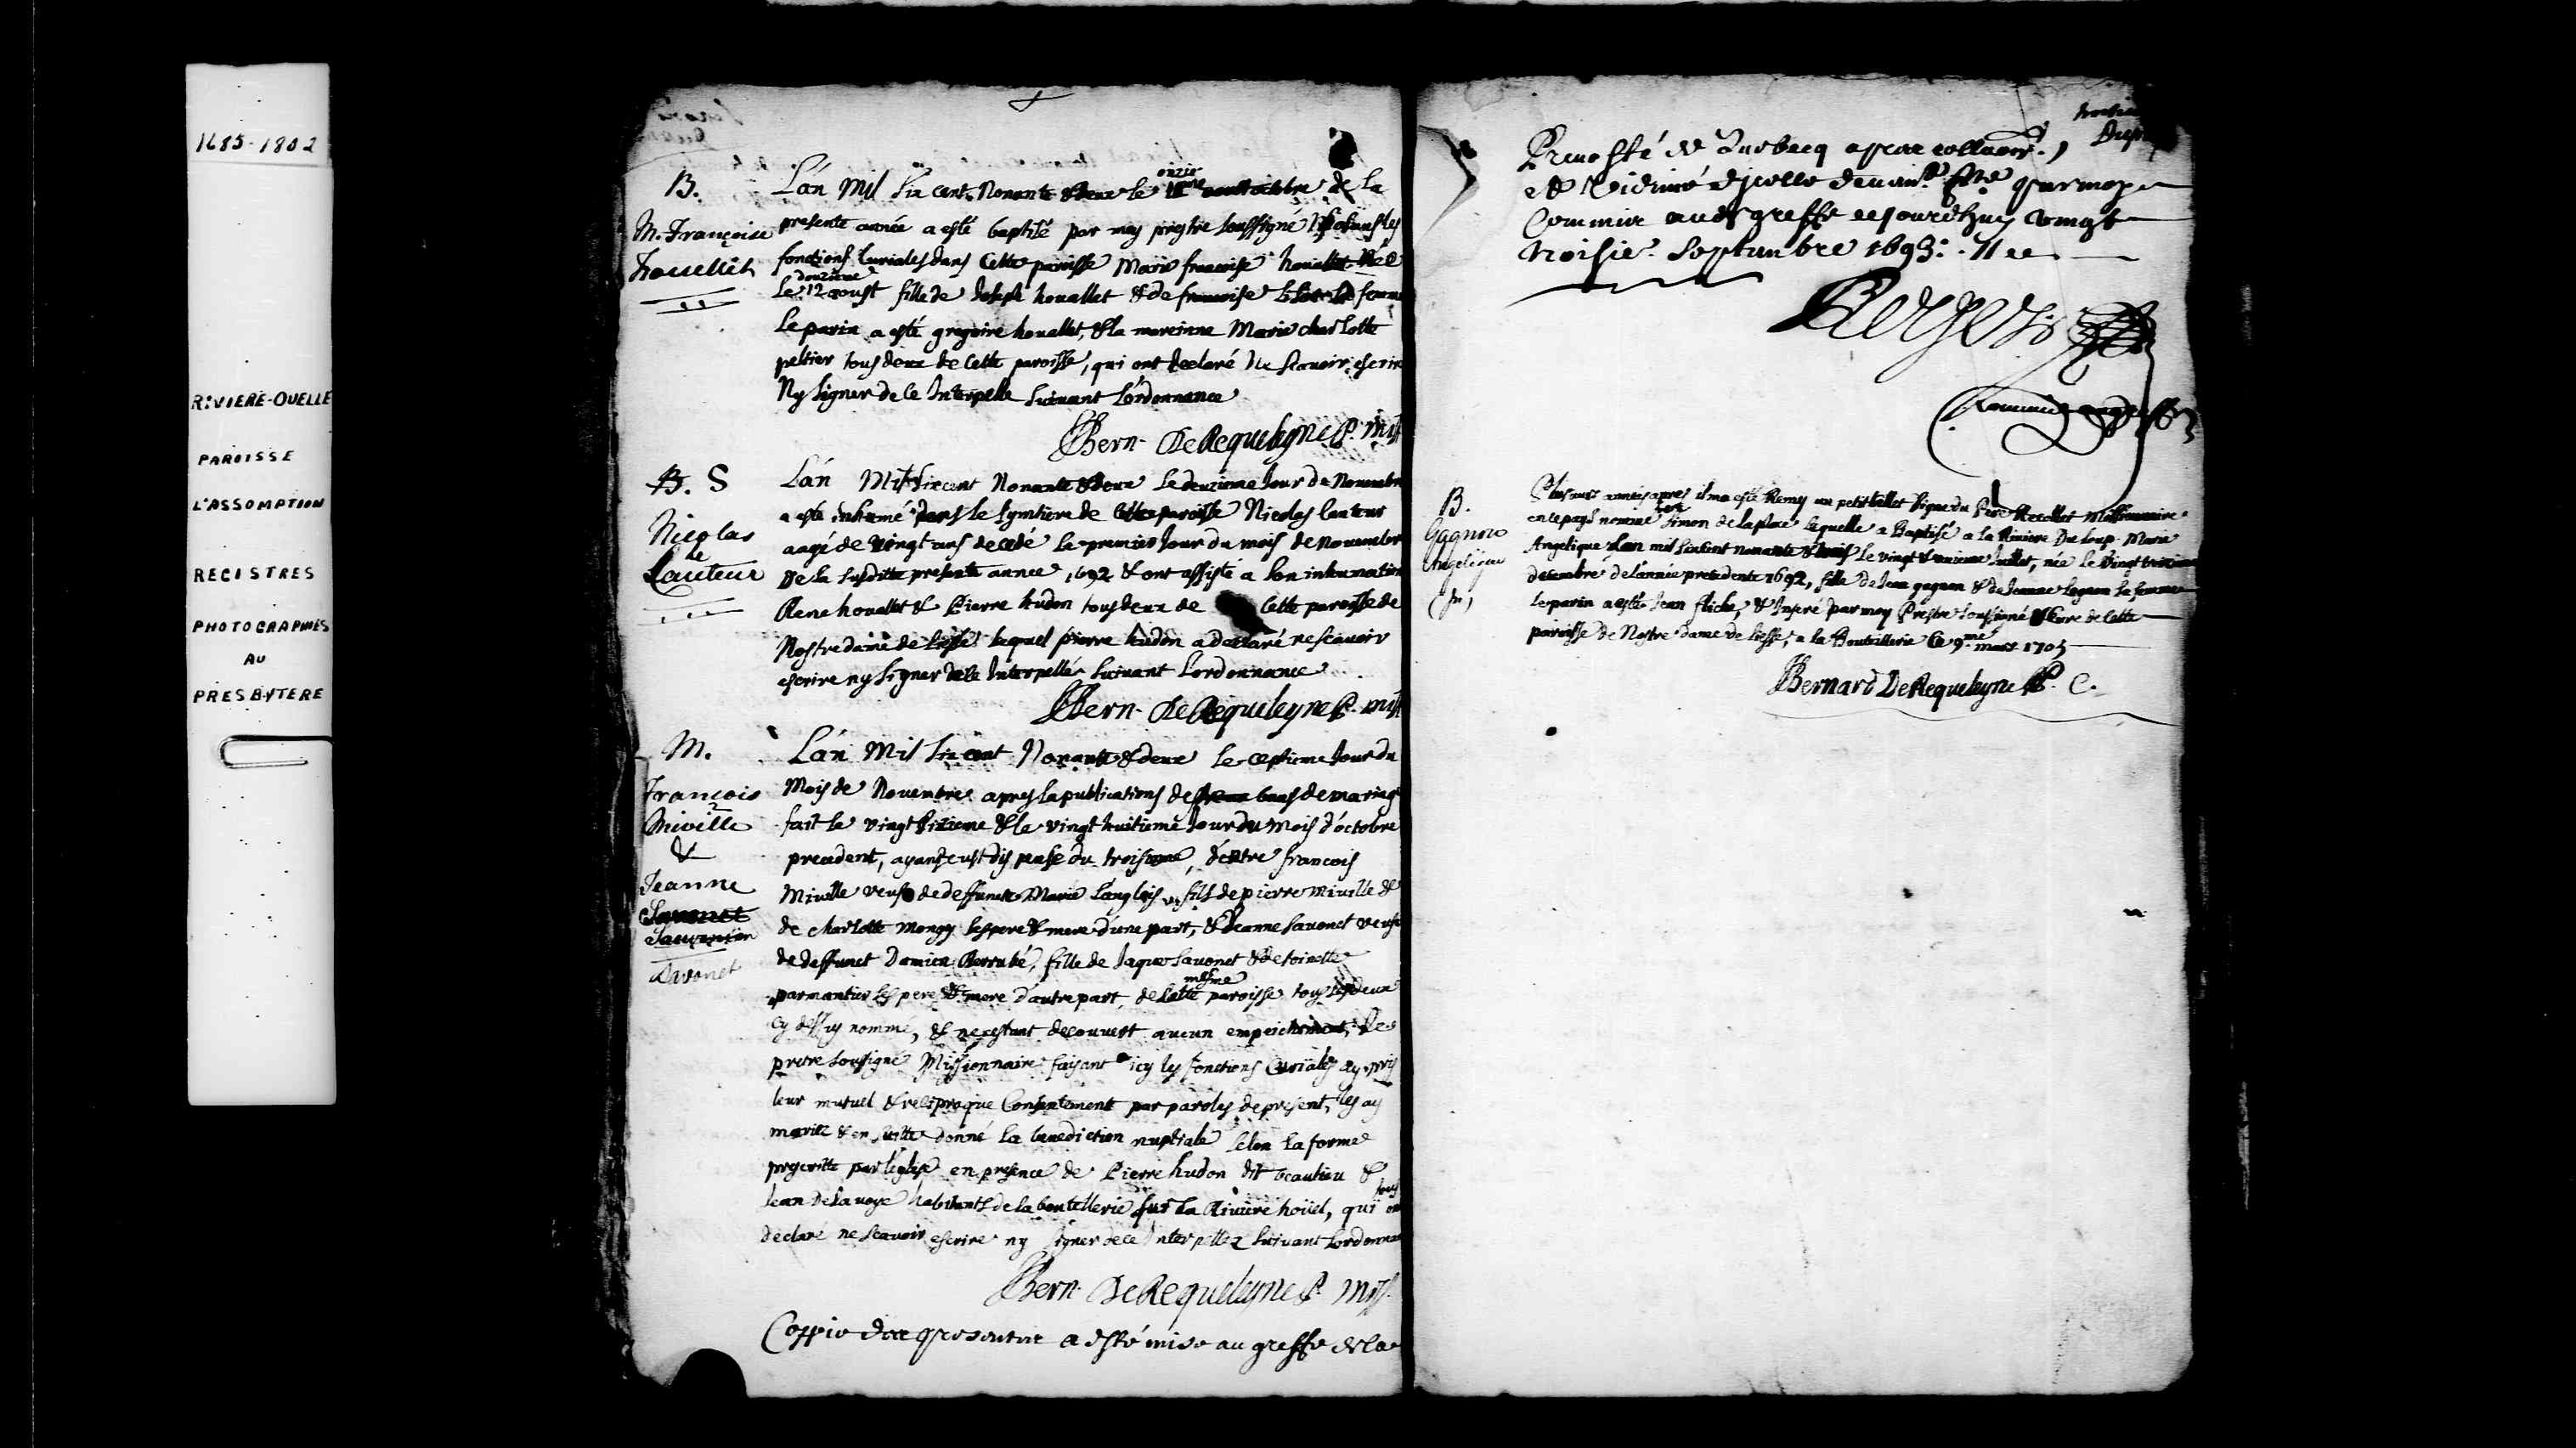 1685-1802
RIVIERE-OUELLE
PAROISSE
L'ASSOMPTION
REGISTRES
PHOTOGRAPHIES
AU
PRESBYTERE
B.
M. Françoise
houellet
L'an Mil Six cent Nonante & deux le onzie octobre de la
presente année a esté baptisé par moy prestre soussigné faisant les
fonctions Curiales dans Cette paroisse Marie francoise houallet Née
le douzieme 12 aoust fille de Joseph houallet & de francoise sa femme
Le parin a esté gregoire houallet, & la mareinne Marie charlotte
peltier tous deux de Cette paroisse, qui ont declaré Ne scauoir escrire
Ny signer de ce Interpellé suiuant L'ordonnance
Bern. DeRequeleyne P. miss
B. S
Nicolas
le
Lauteur
L'an Mil Sixcent Nonante & deux Le deuzieme Jour de Nouembre
a esté inhumé dans le Cymtiere de Cette paroisse Nicolas lauteur
aagé de vingt ans decedé Le premier Jour du mois de Nouembre
De la susditte presente année 1692 & ont assisté a son inhumation
Rene houallet & Pierre hudon tous deux de Cette paroisse de
Nostre dame de liesse lequel pierre hudon a declaré ne scauoir
escrire ny signer de ce Interpellés suiuant L'ordonnance
Bern. DeRequeleyne P. miss
M.
François
Miville
&
Jeanne
Savonet
Savonet
L'an Mil Six cent Nonante & deux Le septieme Jour du
Mois de Nouembre apres la publications de deux bans de mariag
fait le vingt sixieme & le vingt huitieme Jour du Mois d'octobre
precedent, ayant eust dispense du troisieme, d'entre francois
Miuille veuf de deffuncte Marie L'anglois fils de pierre Miuille &
de charlotte mongy ses pere & mere d'une part, & Jeanne Sauonet veufe
de deffunct Damien Berrubé, fille de Jaques Sauonet & de toinette
parmantier ses pere & mere d'autre part, de Cette mesme paroisse tous les deux
cy dessus nommé, & ne restant decouuert aucun empeichement, Je
pretre soussigné Missionnaire faisant icy les fonctions Curiales ay pris
leur mutuel & reciproque Consentement par paroles de present, les ay
mariez & en suitte donné la benediction nuptiale selon la forme
prescritte par l'eglise en presence de Pierre hudon dit beaulieu &
Jean Delauoye habitants de la boutellerie sur la Riuiere hoüel, qui tous on
declaré ne scauoir escrire ny signer de ce Interpellez suiuant Lordonnan
Bern. DeRequeleyne P. Miss.
Coppie des presentes a esté mise au greffe de la
Preuosté de Quebecq apres collaõn
et Vidimé d'jcelle deuant par moy
Commis audt greffe ce jourdhuy vingt
troisie. Septembre 1693:
Rogers
Commis au greffe
B.
Gagnon
Angelique
Plusieurs années apres il m'a esté Remy un petit billet signé du Pere Recollet Missionnaire
en ce pays nommé Pere Simon de la place lequelle a Baptisé a la Riuiere Du Loup Marie
Angelique Lan mil sixcent nonante & trois Le vingt & unieme Juillet, née Le vingt troisieme
decembre de l'année precedente 1692, fille de Jean gagnon & de Jeanne Loignon sa femme
Le parin a esté Jean fliche, & Inseré par moy Prestre soussigné & Cure de Cette
paroisse de Nostre dame de liesse, a la Bouteillerie Ce 9.me mars 1705
Bernard DeRequeleyne P. C.